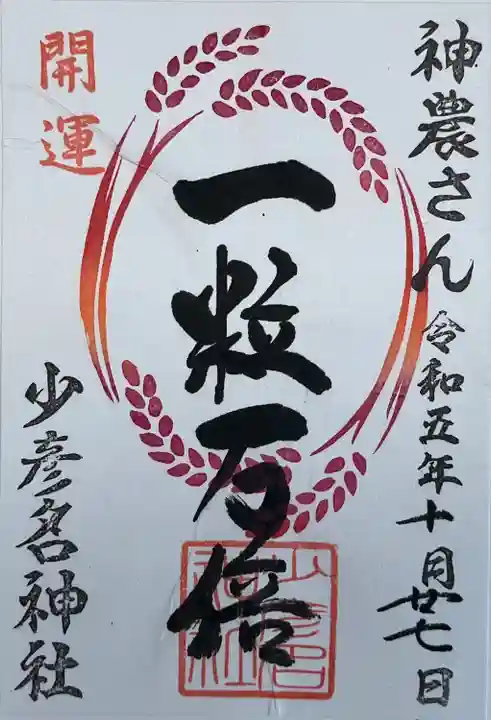 神農さん 令和五年十月廿七日
一粒万倍
開運
少彦名神社